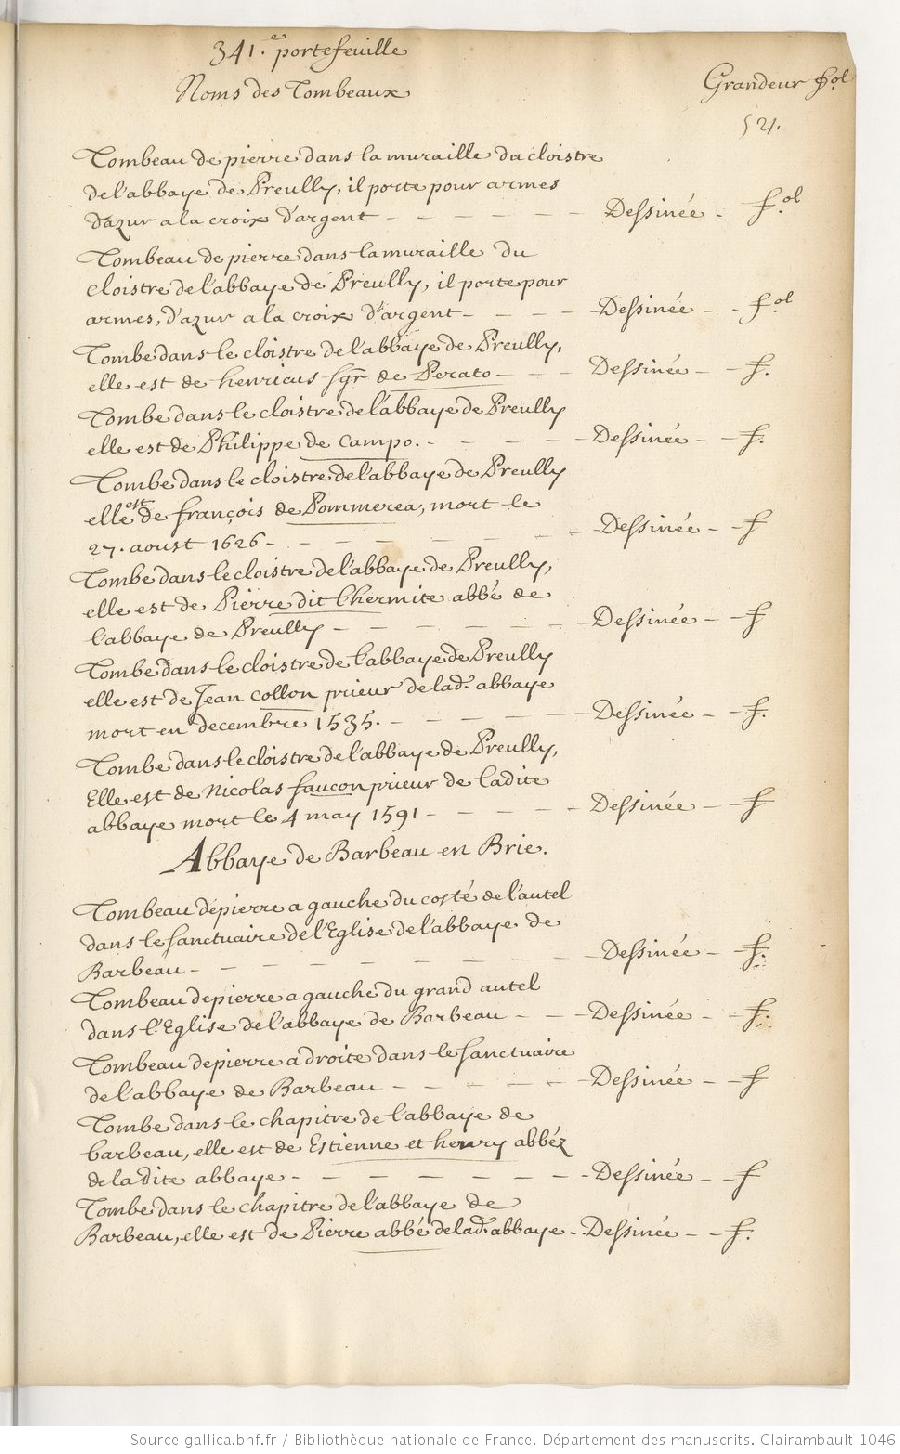 341.e portefeuille
Noms des Tombeaux
Grandeur fol
521.
Tombeau de pierre dans la muraille du cloistre
de l'abbaye de Preully, il porte pour armes
d'azur a la croix d'argent - - - - - - Dessinée - f.ol
Tombeau de pierre dans la muraille du
cloistre de l'abbaye de Preully, il porte pour
armes, d'azur a la croix d'argent - - - - - Dessinée - - f.ol
Tombe dans le cloistre de l'abbaye de Preully,
elle est de henricus sgr de Perato - - - Dessinée - - f.
Tombe dans le cloistre de l'abbaye de Preully
elle est de Philippe de Campo. - - - - - Dessinée - - f.
Tombe dans le cloistre de l'abbaye de Preully
elle est de françois de Pommerea, mort le
27. aoust 1626 - - - - - - - - Dessinée - - f
Tombe dans le cloistre de l'abbaye de Preully,
elle est de Pierre dit l'hermite abbé de
l'abbaye de Preully - - - - - - - Dessinée - - f
Tombe dans le cloistre de l'abbaye de Preully
elle est de Jean Collon prieur de lad. abbaye
mort en decembre 1535. - - - - - - Dessinée - - f.
Tombe dans le cloistre de l'abbaye de Preully,
Elle est de Nicolas faucon prieur de ladite
abbaye mort le 4 may 1591 - - - - - Dessinée - - f
Abbaye de Barbeau en Brie.
Tombeau de pierre a gauche du costé de l'autel
dans le sanctuaire de l'Eglise de l'abbaye de
Barbeau - - - - - - - - - - Dessinée - - f.
Tombeau de pierre a gauche du grand autel
dans l'Eglise de l'abbaye de Barbeau - - - Dessinée - - f.
Tombeau de pierre a droite dans le sanctuaire
de l'abbaye de Barbeau - - - - - - Dessinée - - f
Tombe dans le chapitre de l'abbaye de
barbeau, elle est de Estienne et henry abbéz
de ladite abbaye - - - - - - - - Dessinée - - f
Tombe dans le chapitre de l'abbaye de
Barbeau, elle est de Pierre abbé de lad. abbaye - Dessinée - - f.
Source gallica.bnf.fr / Bibliothèque nationale de France. Département des manuscrits. Clairambault 1046